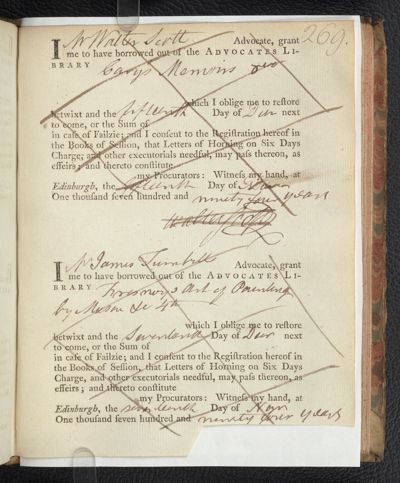 269.
I Mr Walter Scott Advocate, grant
me to have borrowed out of the ADVOCATES LI-
BRARY Carys Memoirs 8vo
which I oblige me to reſtore
betwixt and the fifteenth Day of Decr next
to come, or the Sum of
in caſe of Failzie; and I conſent to the Regiſtration hereof in
the Books of Seſſion, that Letters of Horning on Six Days
Charge, and other executorials needful, may paſs thereon, as
effeirs; and thereto conſtitute
my Procurators: Witneſs my hand, at
Edinburgh, the fifteenth Day of Novr
One thouſand ſeven hundred and ninety four years
Walter Scott
I Mr James Turnbull Advocate, grant
me to have borrowed out of the ADVOCATES LI-
BRARY Fresnoy's Art of Painting
by Mason &c 4to
which I oblige me to reſtore
betwixt and the Seventeenth Day of Decr next
to come, or the Sum of
in caſe of Failzie; and I conſent to the Regiſtration hereof in
the Books of Seſſion, that Letters of Horning on Six Days
Charge, and other executorials needful, may paſs thereon, as
effeirs; and thereto conſtitute
my Procurators: Witneſs my hand, at
Edinburgh, the seventeenth Day of Novr
One thouſand ſeven hundred and ninety four years